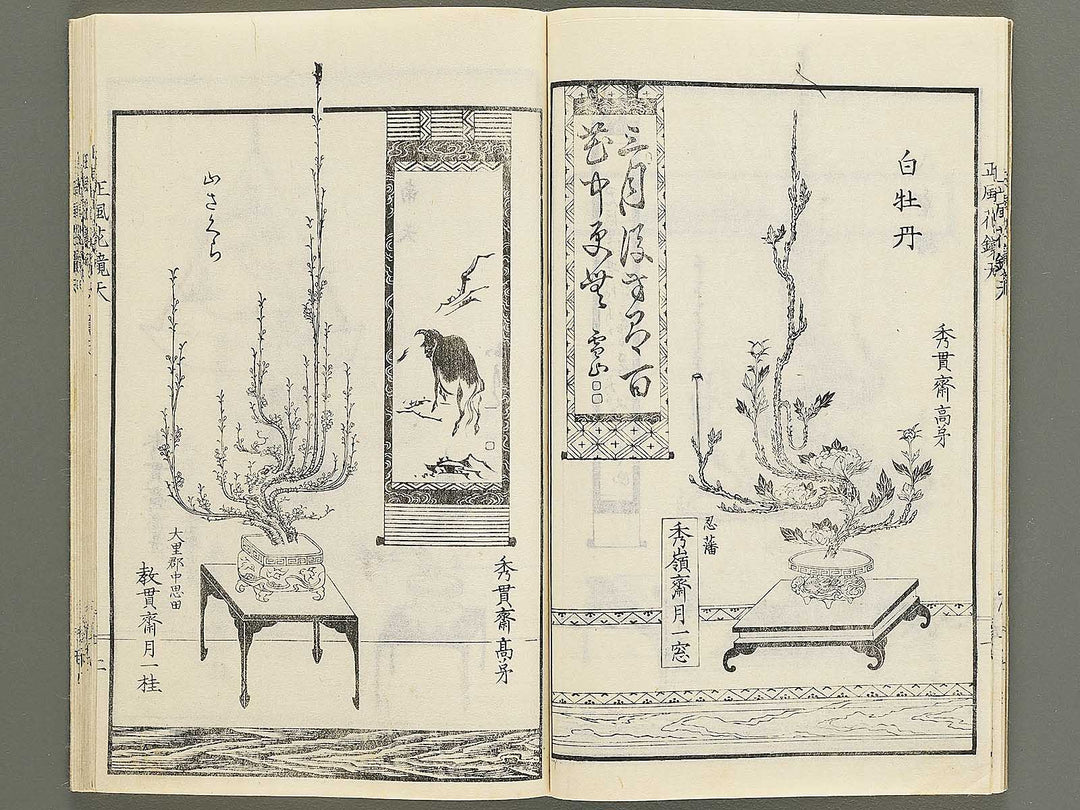 白牡丹
秀貫齋高弟
忍藩
秀嶺齋月一窓
三月
百
花中更無
雪山
秀貫齋高弟
山さくら
大里郡中恩田
教貫齋月一桂
正風花鏡天
二